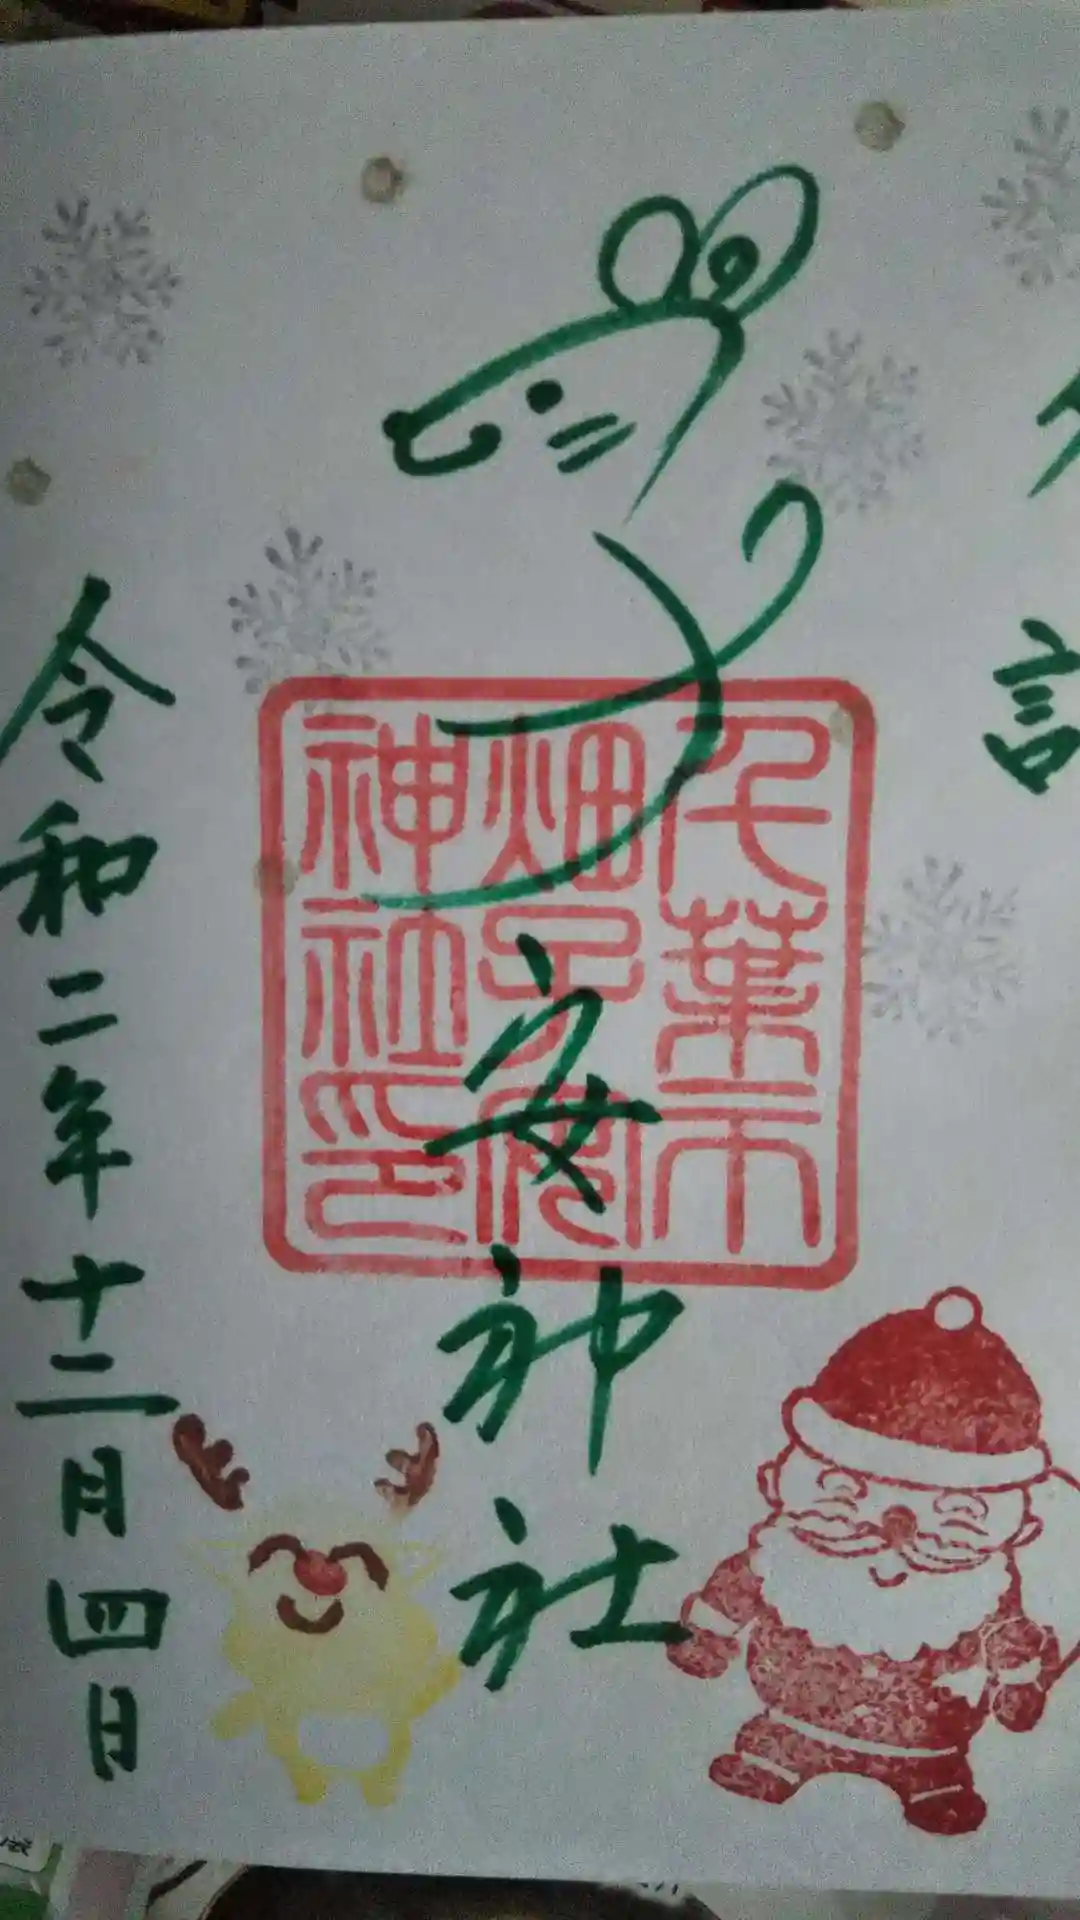 子安神社
千葉市
畑子安
神社印
令和二年十二月四日